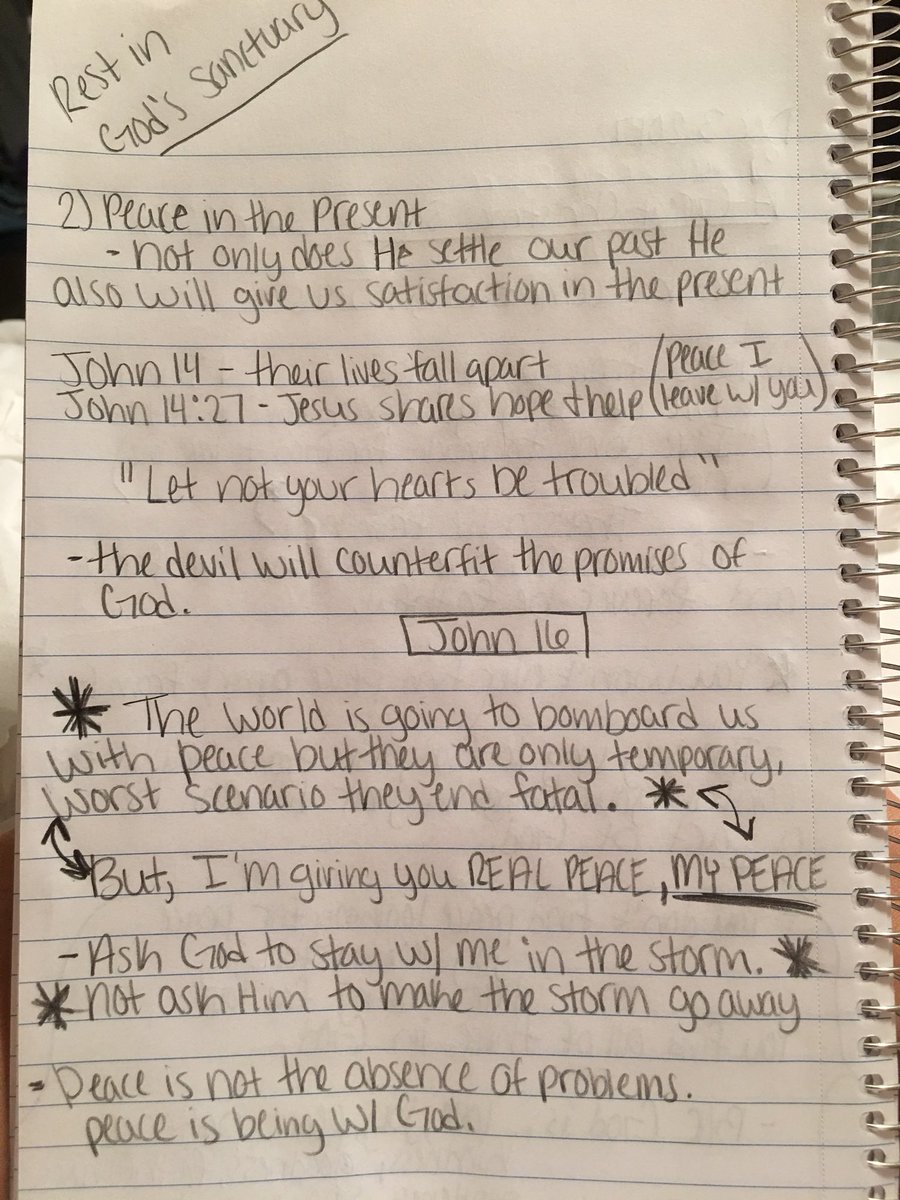 Rest in
God's Sanctuary
2) Peace in the Present
- not only does He settle our past He
also will give us satisfaction in the present
John 14 - their lives fall apart
John 14:27 - Jesus shares hope & help (Peace I leave w/ you)
"Let not your hearts be troubled"
- the devil will counterfit the promises of
God.
John 16
* The world is going to bomboard us
with peace but they are only temporary,
worst scenario they end fatal. *
But, I'm giving you REAL PEACE, MY PEACE
- Ask God to stay w/ me in the storm. *
* not ask Him to make the storm go away
- Peace is not the absence of problems.
peace is being w/ God.